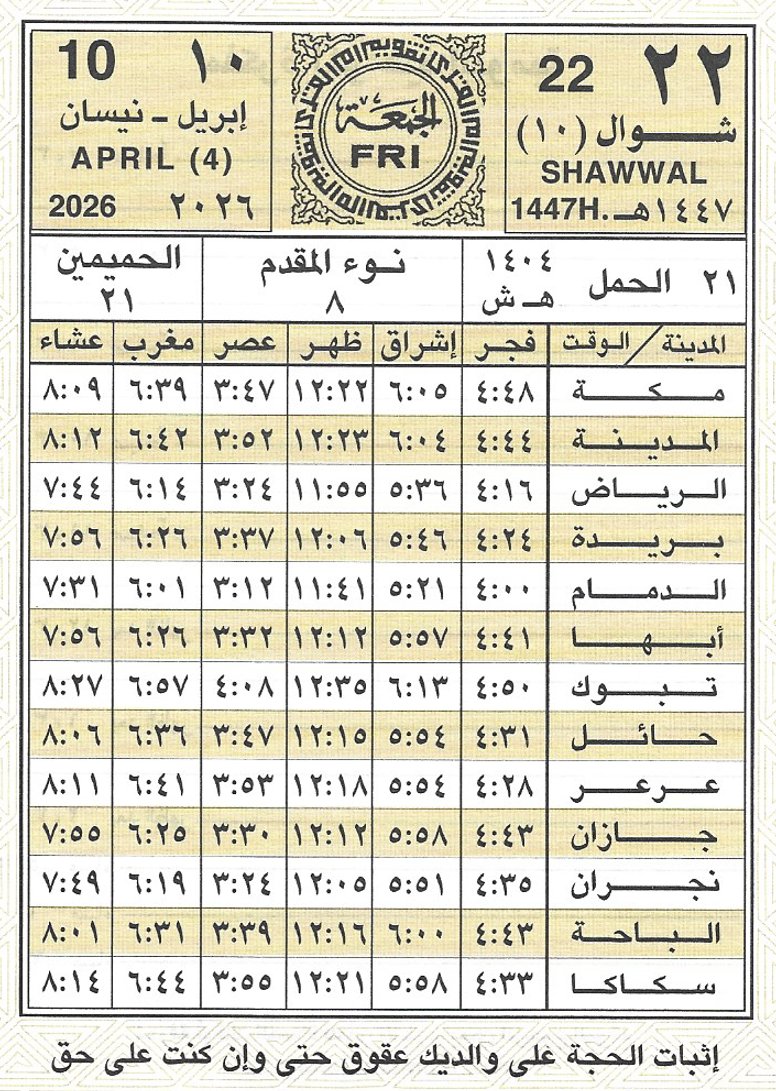 ٢٢ 22
شوال (١٠)
SHAWWAL
1447H. ١٤٤٧هـ
الجمعة
FRI
10 ١٠
إبريل - نيسان
APRIL (4)
2026 ٢٠٢٦
٢١ الحمل ١٤٠٤ هـ ش
نوء المقدم
٨
الحميمين
٢١
المدينة / الوقت فجر إشراق ظهر عصر مغرب عشاء
مكة ٤:٤٨ ٦:٠٥ ١٢:٢٢ ٣:٤٧ ٦:٣٩ ٨:٠٩
المدينة ٤:٤٤ ٦:٠٤ ١٢:٢٣ ٣:٥٢ ٦:٤٢ ٨:١٢
الرياض ٤:١٦ ٥:٣٦ ١١:٥٥ ٣:٢٤ ٦:١٤ ٧:٤٤
بريدة ٤:٢٤ ٥:٤٦ ١٢:٠٦ ٣:٣٧ ٦:٢٦ ٧:٥٦
الدمام ٤:٠٠ ٥:٢١ ١١:٤١ ٣:١٢ ٦:٠١ ٧:٣١
أبها ٤:٤١ ٥:٥٧ ١٢:١٢ ٣:٣٢ ٦:٢٦ ٧:٥٦
تبوك ٤:٥٠ ٦:١٣ ١٢:٣٥ ٤:٠٨ ٦:٥٧ ٨:٢٧
حائل ٤:٣١ ٥:٥٤ ١٢:١٥ ٣:٤٧ ٦:٣٦ ٨:٠٦
عرعر ٤:٢٨ ٥:٥٤ ١٢:١٨ ٣:٥٣ ٦:٤١ ٨:١١
جازان ٤:٤٣ ٥:٥٨ ١٢:١٢ ٣:٣٠ ٦:٢٥ ٧:٥٥
نجران ٤:٣٥ ٥:٥١ ١٢:٠٥ ٣:٢٤ ٦:١٩ ٧:٤٩
الباحة ٤:٤٣ ٦:٠٠ ١٢:١٦ ٣:٣٩ ٦:٣١ ٨:٠١
سكاكا ٤:٣٣ ٥:٥٨ ١٢:٢١ ٣:٥٥ ٦:٤٤ ٨:١٤
إثبات الحجة على والديك عقوق حتى وإن كنت على حق